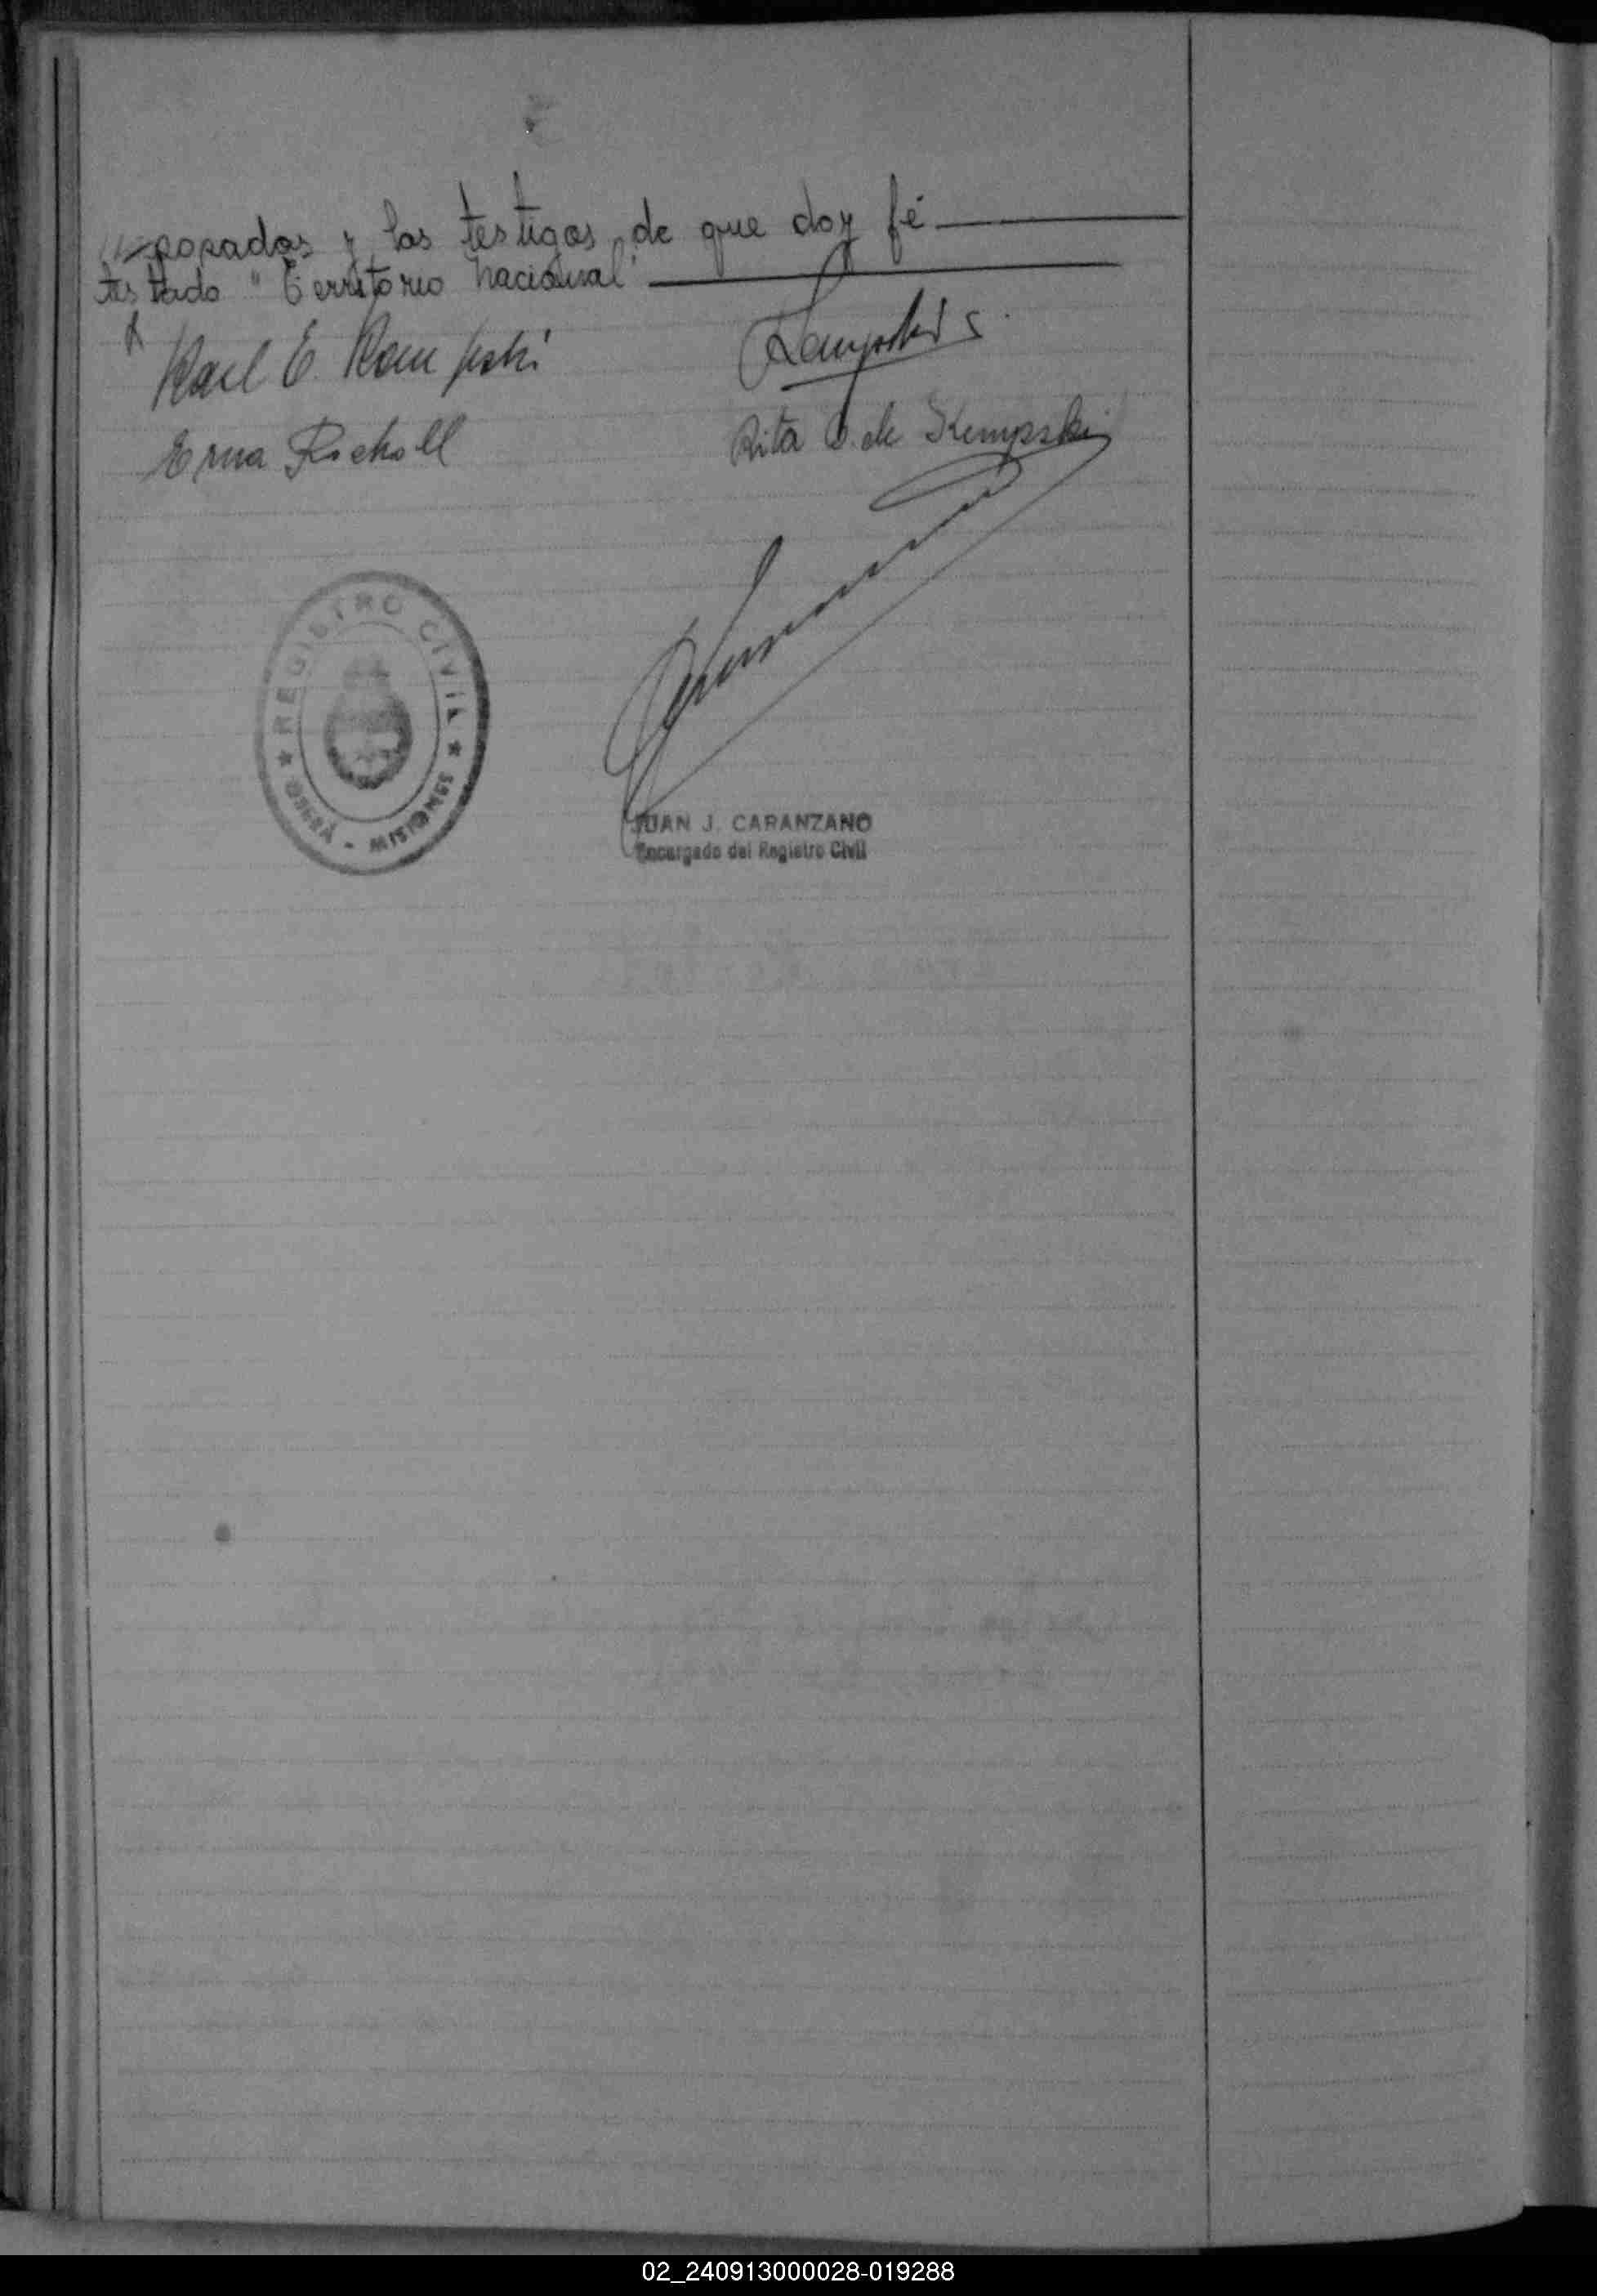 posados y los testigos, de que doy fé
testado "Territorio Nacional"
Karl E. Kempski
Kempski
Erna Rickoll
Rita de Kempski
REGISTRO CIVIL
OBERÁ - MISIONES
JUAN J. CARANZANO
Encargado del Registro Civil
02_240913000028-019288